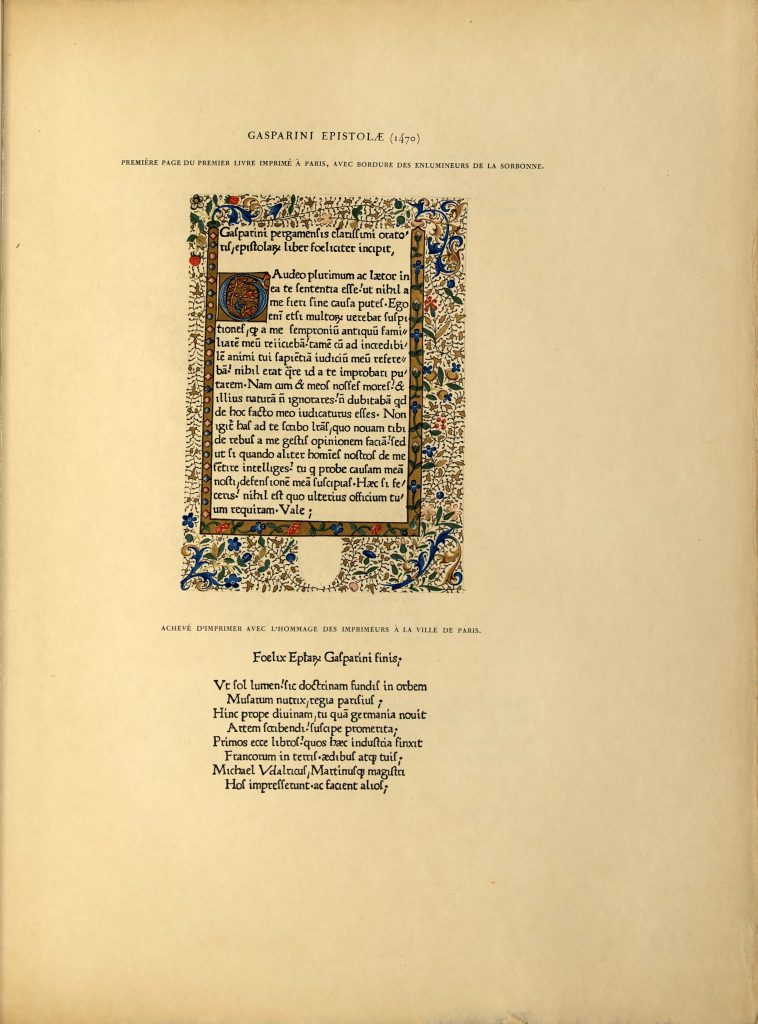 GASPARINI EPISTOLÆ (1470)
PREMIÈRE PAGE DU PREMIER LIVRE IMPRIMÉ À PARIS, AVEC BORDURE DES ENLUMINEURS DE LA SORBONNE.
Gaſparini pergamenſis clariſſimi orato/
ris, epiſtolaꝝ liber fœliciter incipit,
GAudeo plurimum ac lætor in
ea te ſententia eſſe: ut nihil a
me fieri ſine cauſa putes. Ego
enī etſi multoꝝ uerebar ſuſpi
tiones, ꝙ a me ſemproniū antiquū fami/
liarē meū reiiciebā: tamē cū ad incredibi/
lē animi tui ſapiētiā iudiciū meū refere/
bā: nihil erat q̄re id a te improbari pu/
tarem. Nam cum & meos noſſes mores: &
illius naturā n̄ ignorares: n̄ dubitabā qd
de hoc facto meo iudicaturus eſſes. Non
igiť has ad te ſcribo lr̄as, quo nouam tibi
de rebus a me geſtis opinionem faciā: ſed
ut ſi quando aliter homīes noſtros de me
ſētire intelliges: tu q probe cauſam meā
noſti, defenſionē meā ſuſcipias. Hæc ſi fe/
ceris: nihil eſt quo ulterius officium tu/
um requiram. Vale ;
ACHEVÉ D'IMPRIMER AVEC L'HOMMAGE DES IMPRIMEURS À LA VILLE DE PARIS.
Foelix Epľaꝝ Gaſparini finis;
Vt ſol lumen: ſic doctrinam fundis in orbem
Muſarum nutrix, regia pariſius ;
Hinc prope diuinam, tu quā germania nouit
Artem ſcribendi: ſuſcipe promerita;
Primos ecce libros: quos hæc induſtria finxit
Francorum in terris. ædibus atq̨ tuis;
Michael Vdalricus, Martinuſq̨ magiſtri
Hos impreſſerunt. ac facient alios;